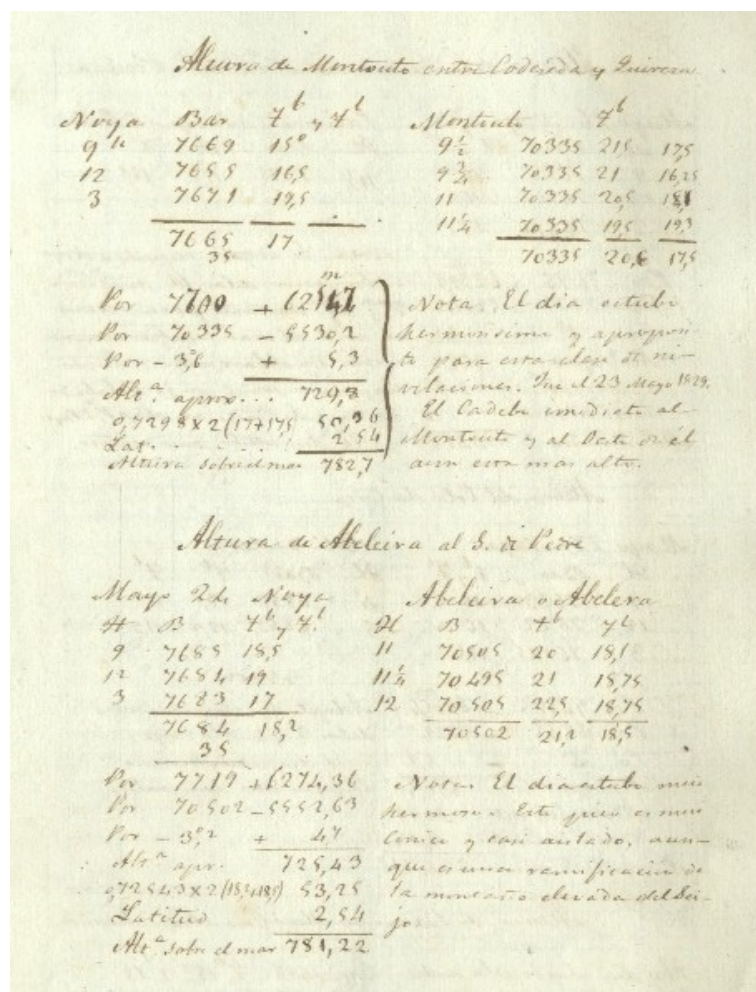 Altura de Montouto entre Codeseda y Quireza
Noya Bar Tb y Tl Montouto Tb
9 h 7669 15° 9½ 70335 215 17,5
12 7655 16,5 9¾ 70335 21 16,25
3 7671 19,5 11 70335 20,5 181
7665 17 11¼ 70335 195 19,3
35 70335 20,6 17,5
Por 7700 + 62547 m
Por 70335 – 5530,2
Por – 3°,6 + 5,3
Alt.a aprox... 729,8
0,7298 x 2 (17+175) 50,36
Lat. . . . 2 54
Altura sobre el mar 782,7
Nota El dia estubo
hermosisimo y aproposi-
to para esta clase de ni-
velaciones. Fue el 23 Mayo 1829.
El Cadebo inmediato al
Montouto y al Oeste de él
aun esta mas alto.
Altura de Abeleira al S. de Pedre
Mayo 24 Noya Abeleira o Abelera
H B Tb y Tl H B Tb Tl
9 7685 18,5 11 70505 20 18,1
12 7684 19 11¼ 70495 21 18,75
3 7683 17 12 70505 22,5 18,75
7684 18,2 70502 21,2 18,5
35
Por 7719 + 6274,36
Por 70502 – 5552,63
Por – 3°,2 + 47
Alt.a apr. 725,43
0,72543 x 2 (18,2+18,5) 53,25
Latitud 2,54
Alt.a sobre el mar 781,22
Nota. El dia estubo mui
hermoso. Este pico es mui
conico y casi aislado, aun-
que es una ramificacion de
la montaña elevada del Sei-
jo